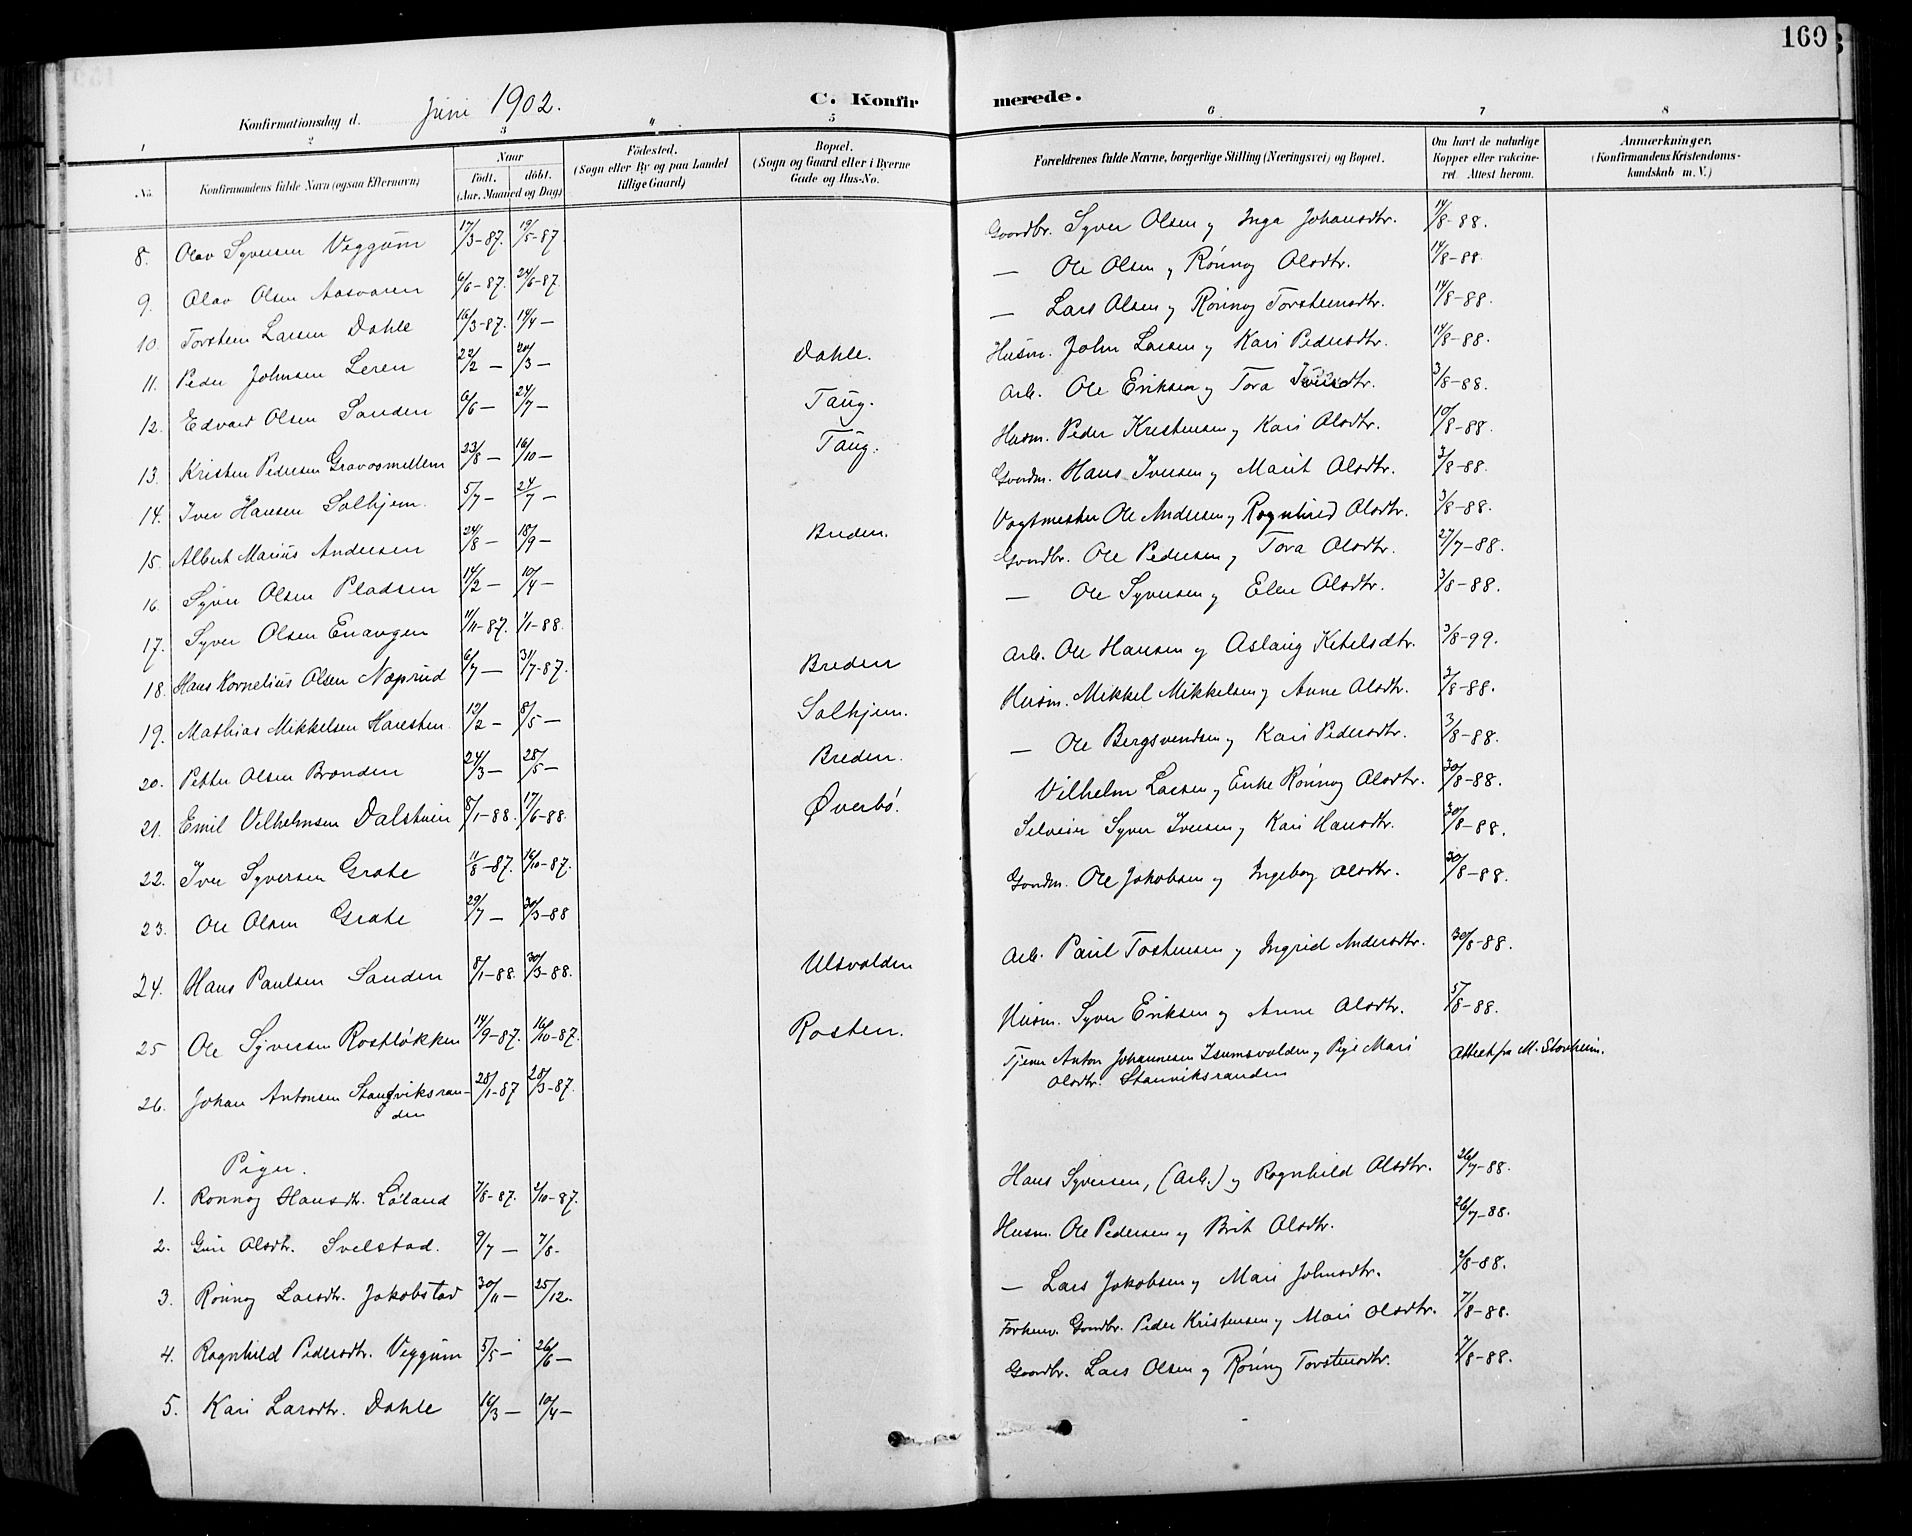 160
Konfirmationsdag d. Juni 1902.
C. Konfirmerede.
1 2 3 4 5 6 7 8
No.
Konfirmandens fulde Navn (ogsaa Efternavn)
Naar
født. døbt.
(Aar, Maaned og Dag)
Fødested.
(Sogn eller By og paa Landet
tillige Gaard)
Bopæl.
(Sogn og Gaard eller i Byerne
Gade og Hus-No.
Forældrenes fulde Navne, borgerlige Stilling (Næringsvei) og Bopæl.
Om havt de naturlige
Kopper eller vakcine-
ret. Attest herom.
Anmærkninger.
(Konfirmandens Kristendoms-
kundskab m. V.)
8. Olav Syversen Veggum 17/3-87. 19/5-87. Gaardbr. Syver Olsen og Inga Johansdtr. 14/8-88.
9. Olav Olsen Aasvaren 6/6-87. 24/6-87. — Ole Olsen og Rønnog Olsdtr. 14/8-88.
10. Torstein Larsen Dahle 16/3-87. 14/4 — — Lars Olsen og Rønnog Torsteinsdtr. 14/8-88.
11. Peder Johnsen Leren 22/2 — 20/3 — Dahle. Husm. John Larsen og Kari Pedersdtr. 14/8-88.
12. Edvard Olsen Sanden 6/6 — 24/7 — Taug. Arb. Ole Eriksen og Tora Iversdtr. 3/8-88.
13. Kristen Pedersen Gravosmellem 23/8 — 16/10 — Taug. Husm. Peder Kristensen og Kari Olsdtr. 10/8-88.
14. Iver Hansen Solhjem. 5/7 — 24/7 — Gaardm. Hans Iversen og Marit Olsdtr. 3/8-88.
15. Albert Marius Andersen 24/8 — 18/9 — Breden. Vogtmester Ole Andersen og Ragnhild Olsdtr. 3/8-88.
16. Syver Olsen Pladsen 14/2 — 10/4 — Gaardbr. Ole Pedersen og Tora Olsdtr. 27/7-88.
17. Syver Olsen Enangen 11/11-87. 1/1-88. — Ole Syversen og Elen Olsdtr. 3/8-88.
18. Hans Kornelius Olsen Næprud 6/7 — 31/7-87. Breden Arb. Ole Hansen og Aslaug Ketelsdtr. 3/8-99.
19. Mathias Mikkelsen Haresten. 12/2 — 8/5 — Solhjem. Husm. Mikkel Mikkelsen og Anne Olsdtr. 2/8-88.
20. Petter Olsen Brænden 24/3 — 28/5 — Breden. — Ole Bergsvendsen og Kari Pedersdtr. 3/8-88.
21. Emil Vilhelmsen Dalstuen 8/1-88. 17/6-88. Øverbø. Vilhelm Larsen og Enke Rønnog Olsdtr. 30/8-88.
22. Iver Syversen Grote 11/8-87. 16/10-87. Selveier Syver Iversen og Kari Hansdtr. 30/8-88.
23. Ole Olsen Grote 29/7 — 30/3-88 Gaardm. Ole Jakobsen og Ingebog Olsdtr. 30/8-88.
24. Hans Paulsen Sanden 8/1-88. 30/3-88. Ulsvolden Arb. Paul Tostensen og Ingrid Andersdtr. 30/8-88.
25 Ole Syversen Rostløkken 14/9-87. 16/10-87. Rosten. Husm. Syver Eriksen og Anne Olsdtr. 5/8-88.
26. Johan Antonsen Stangviksran- 28/1-87 28/3-87. Tjener Anton Johannesen Isumsvolden og Pige Mari Attest fra M. Slorheim.
den Olsdtr. Stanviksranden
Piger.
1. Rønnog Hansdtr. Løland 7/8-87. 2/10-87. Hans Syversen, (Arb.) og Ragnhild Olsdtr. 26/7-88.
2. Guri Olsdtr. Svelstad. 9/7 — 7/8- Husm. Ole Pedersen og Brit Olsdtr. 26/7-88.
3. Rønnog Larsdtr. Jakobstad 30/11 — 25/12- — Lars Jakobsen og Mari Johnsdtr. 2/8-88.
4. Ragnhild Pedersdtr. Veggum 5/5 — 26/6 — Forhenv. Gaardbr. Peder Kristensen og Mari Olsdtr. 7/8-88.
5. Kari Larsdtr. Dahle 16/3 — 10/4 — Gaardbr. Lars Olsen og Rønnog Torstensdtr. 7/8-88.